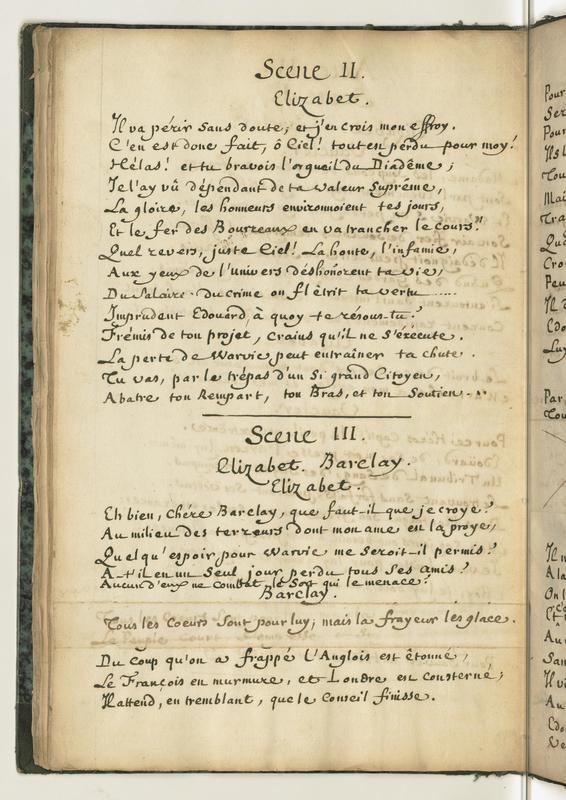 Scene II.
Elizabet.
Il va périr sans doute, et j'en crois mon effroy.
C'en est donc fait, ô Ciel! tout en perdu pour moy!
Hélas! et tu bravois l'orgueil du Diadême;
Je l'ay vû dépendant de ta valeur Suprême,
La gloire, les honneurs environnoient tes jours,
Et le fer des Bourreaux en va trancher le cours!
Quel revers, juste Ciel! La honte, l'infamie,
Aux yeux de l'univers déshonorent ta vie,
Du Salaire du crime on flétrit ta vertu.....
Imprudent Edouard, à quoy te résous-tu?
Frémis de ton projet, crains qu'il ne s'éxécute.
La perte de Warvic peut entraîner ta chute.
Tu vas, par le trépas d'un Si grand Citoyen,
Abatre ton Rempart, ton Bras, et ton Soutien...
Scene III.
Elizabet. Barclay.
Elizabet.
Eh bien, Chére Barclay, que faut-il que je croye?
Au milieu des terreurs dont mon ame en la proye,
Quelqu'espoir pour Warvic me Seroit-il permis?
A-t'il en un Seul jour perdu tous Ses amis?
Aucun d'eux ne Combat le Sort qui le menace?
Barclay.
Tous les Coeurs Sont pour luy; mais la frayeur les glace.
Du Coup qu'on a frappé l'Anglois est étonné,
Le François en murmure, et Londre en Consterné;
Il attend, en tremblant, que le Conseil finisse.